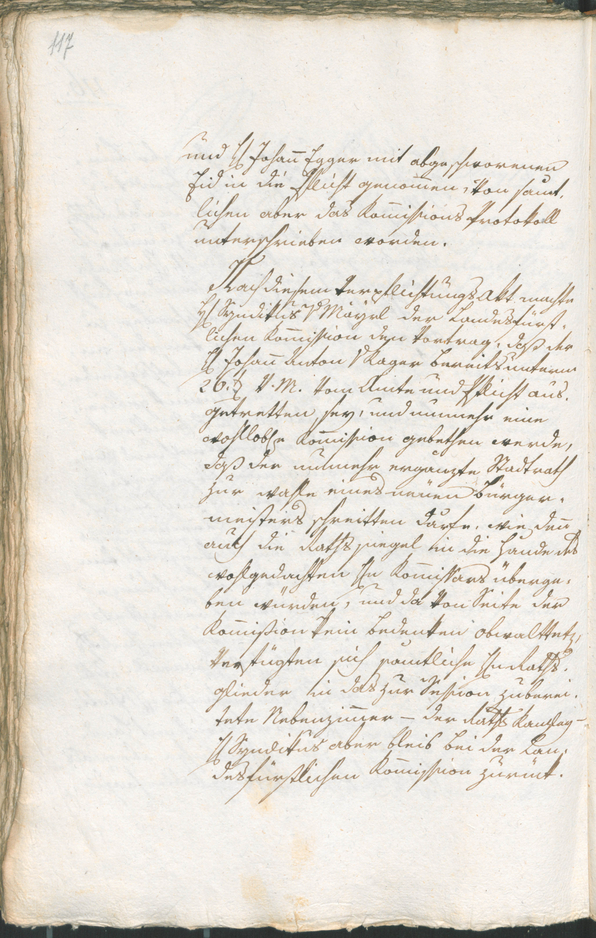 117
und H Johann Egger mit abgeschworenem
Eid in die Pflicht genommen, von sämt-
lichen aber das Kommissions Protokoll
unterschrieben worden.
Nach diesem Verpflichtungs Akt machte
H Syndikus v Mayrl der Landesfürst-
lichen Kommission den Vortrag, daß der
H Johann Anton v Kager bereits unterm
26. v. M. vom Amte und Pflicht aus-
getretten sey, und nunmehr eine
wohllobl Kommission gebethen werde,
daß der nunmehr ergänzte Stadtrath
zur wahle eines neuen Bürger-
meisters schreitten därfe, wie denn
auch die Rathssiegel in die Hände des
wohlgedachten Hn Kommissars überge-
ben würden, und da von Seite der
Kommission kein bedenken obwalttete,
verfügten sich sämtliche Hn Raths-
glieder in das zur Session zuberei-
tete Nebenzimmer – der Raths Kanzley –
H Syndikus aber bleib bei der Lan-
desfürstlichen Kommission zurück.